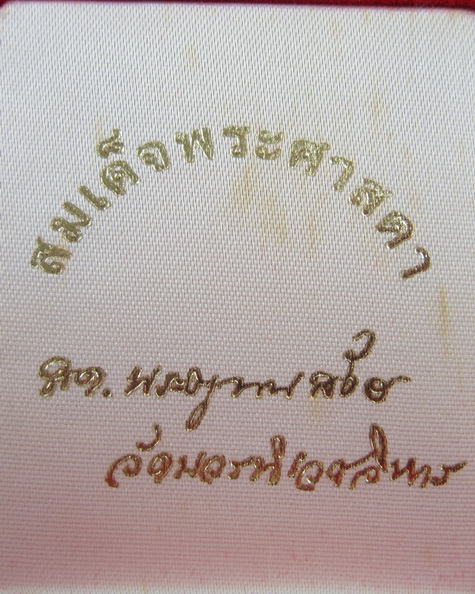 สมเด็จพระศาสดา
สต. พระญาณสังวร
วัดบวรนิเวศวิหาร